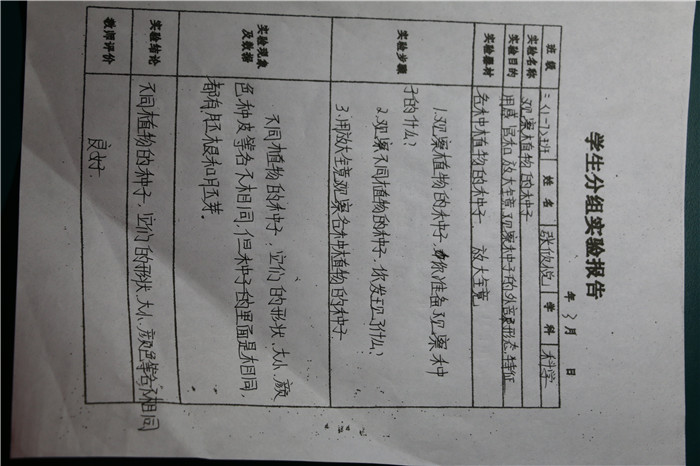 学生分组实验报告
年 3 月 日
班级 三(1-7)班 姓名 张欣悦 学科 科学
实验名称 观察植物的种子
实验目的 用感官和放大镜观察种子的外部形态特征
实验器材 各种植物的种子 放大镜
实验步骤 1.观察植物的种子,你准备观察种
子的什么?
2.观察不同植物的种子,你发现了什么?
3.用放大镜观察各种植物的种子.
实验现象及数据 不同植物的种子,它们的形状、大小、颜
色、种皮等各不相同,但种子的里面是相同,
都有胚根和胚芽.
实验结论 不同植物的种子,它们的形状、大小、颜色等各不相同
教师评价 良好.